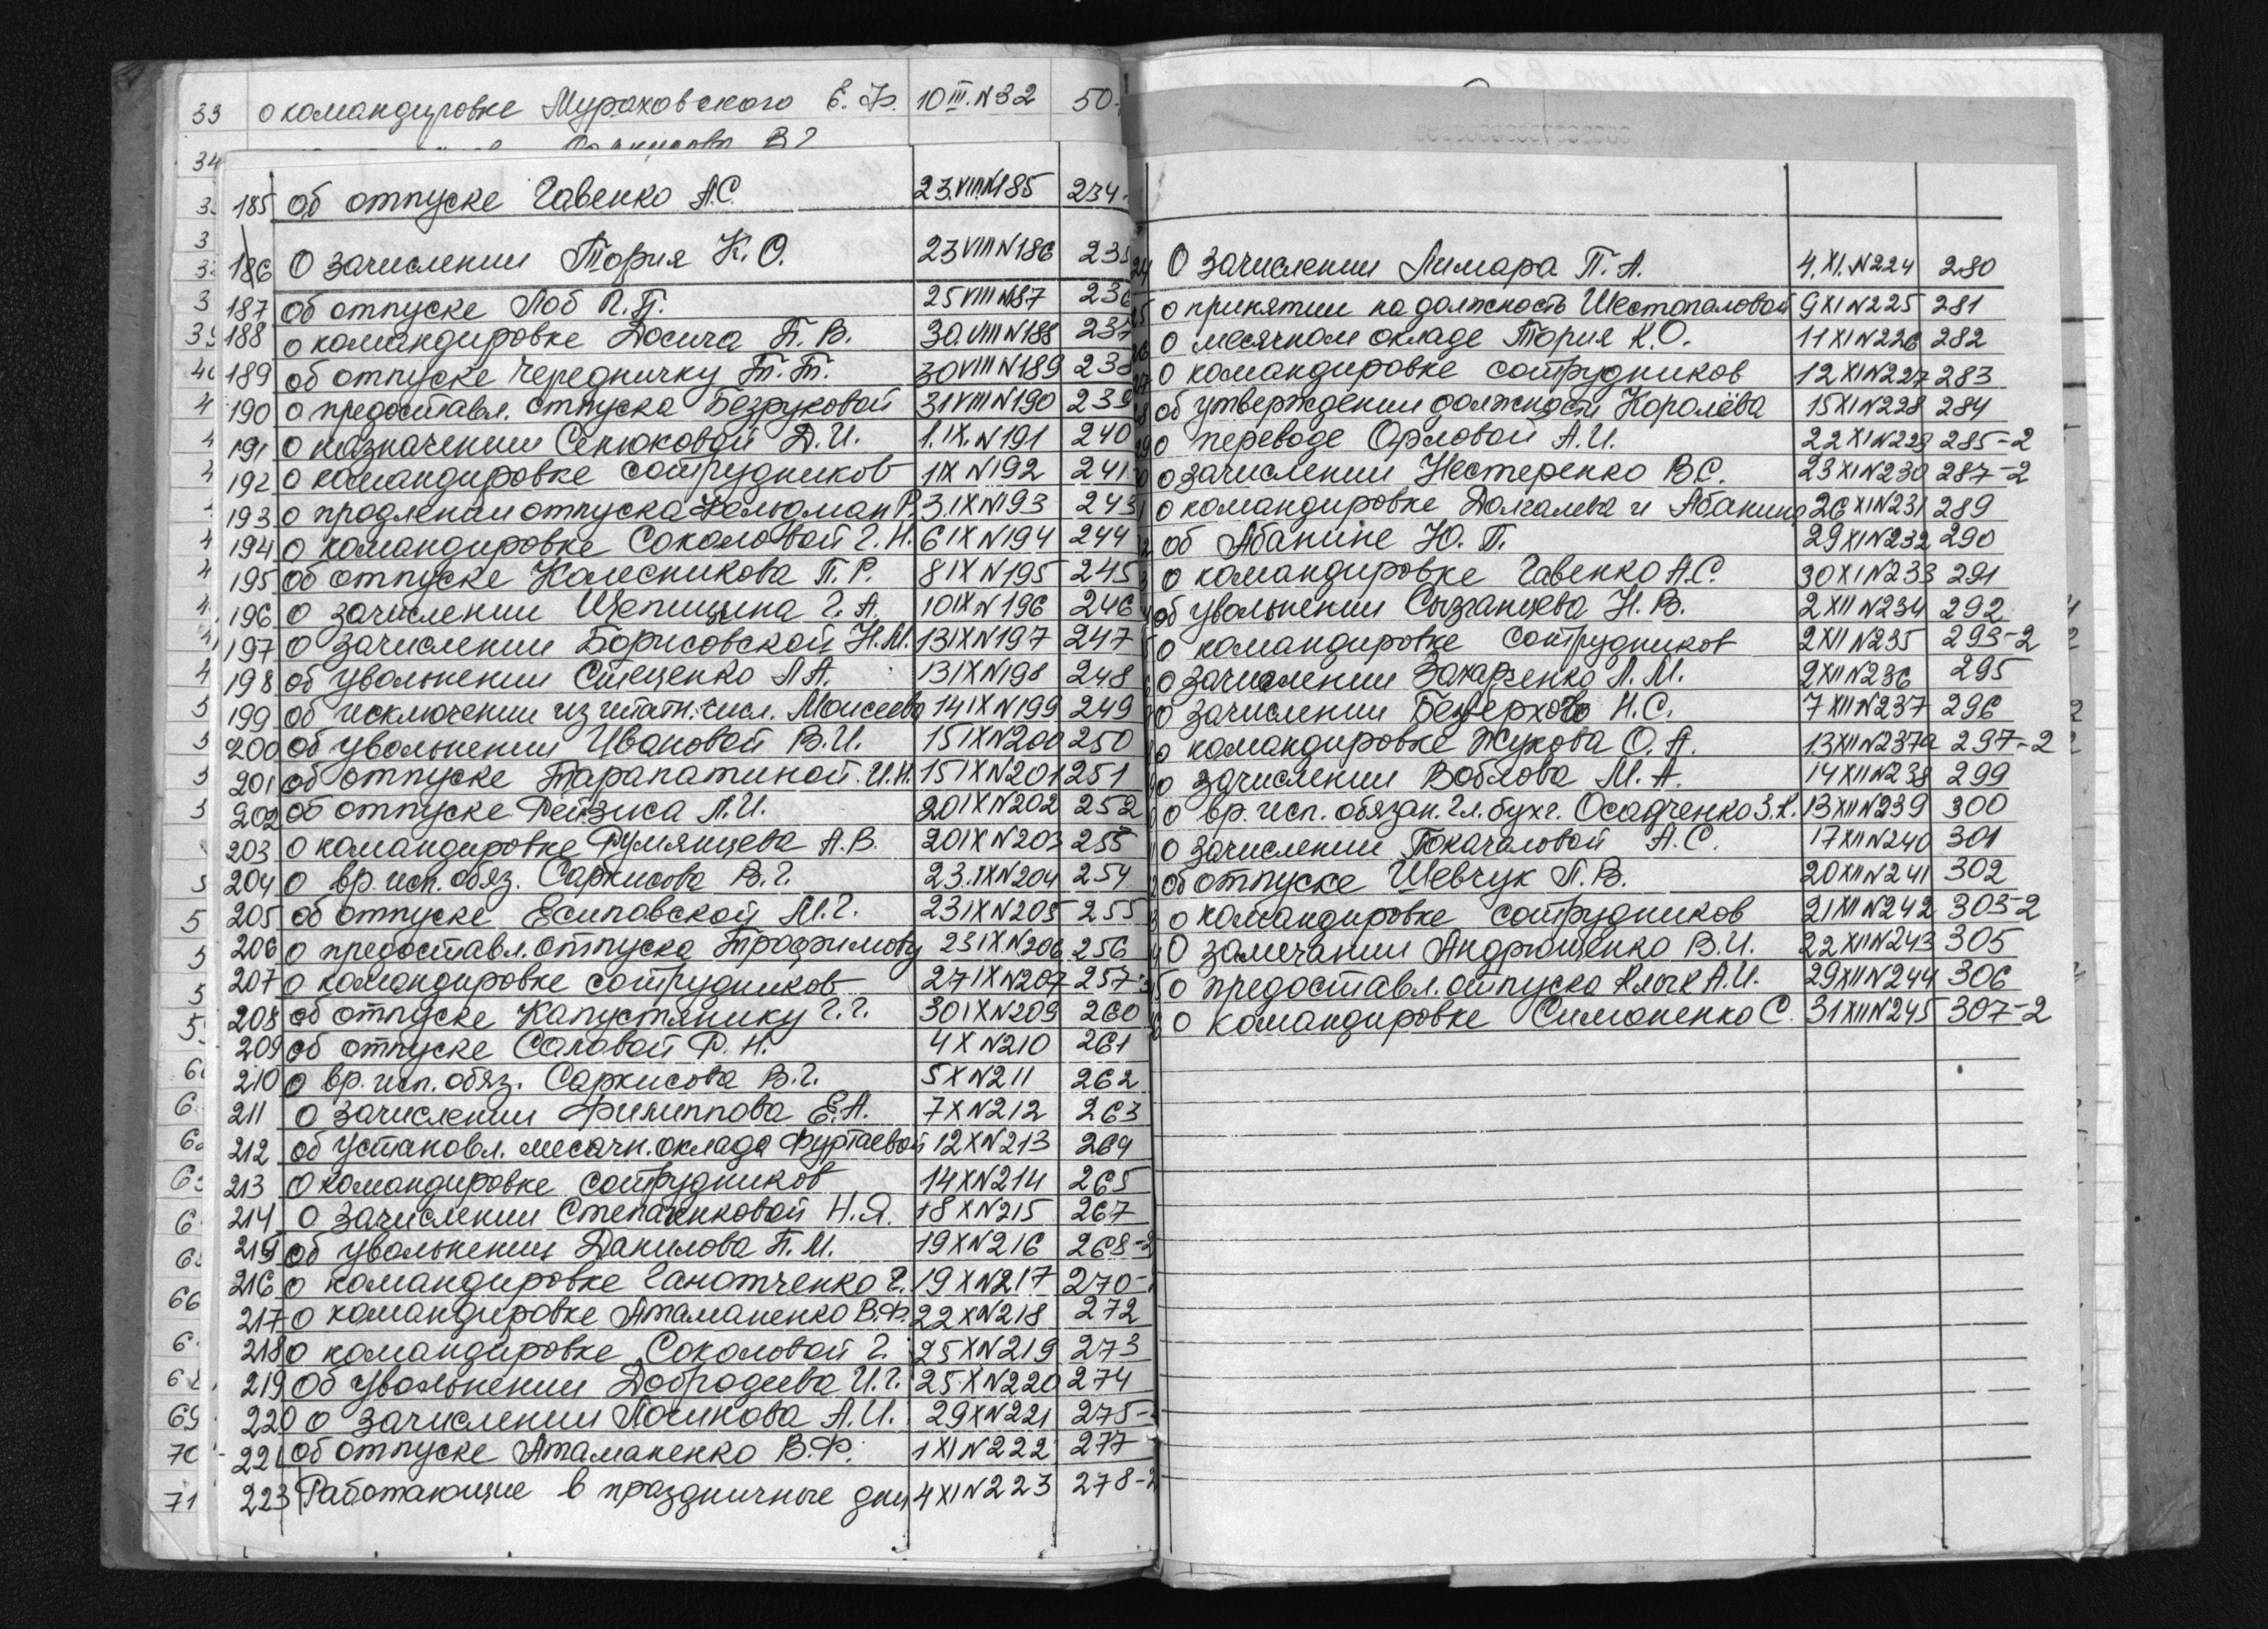 33 о командировке Мураховского Е.Ф. 10 III. N32 50-
34
185 об отпуске Гавенко А.С. 23.VIII.N185 234-
186 О зачислении Тория К.О. 23 VIII N186 235
187 об отпуске Лоб П.П. 25 VIII N187 236
188 о командировке Досича П.В. 30.VIII N188 237
189 об отпуске Чередничку Т.Т. 30 VIII N189 238
190 о предоставл. отпуска Безруковой 31 VIII N190 239
191 о назначении Сенюковой Д.И. 1.IX.N191 240
192 о командировке сотрудников 1 IX N192 241
193 о продлении отпуска Фельдман Р. 3.IX N193 243
194 о командировке Соколовой Г.Н. 6 IX N194 244
195 об отпуске Колесникова П.Р. 8 IX N195 245
196 о зачислении Щепицина Г.А. 10 IX N196 246
197 о зачислении Борисовской Н.М. 13 IX N197 247
198 об увольнении Стеценко Л.А. 13 IX N198 248
199 об исключении из штатн. числ. Моисеева 14 IX N199 249
200 об увольнении Ивановой В.И. 15 IX N200 250
201 об отпуске Тарапатиной И.Н. 15 IX N201 251
202 об отпуске Рейзиса Л.И. 20 IX N202 252
203 о командировке Румянцева А.В. 20 IX N203 253
204 о вр. исп. обяз. Саркисова В.Г. 23.IX N204 254
205 об отпуске Есиповской М.Г. 23 IX N205 255
206 о предоставл. отпуска Трофимову 23 IX N206 256
207 о командировке сотрудников 27 IX N207 257-3
208 об отпуске Капустянику Г.Г. 30 IX N209 260
209 об отпуске Саловой Р.Н. 4 X N210 261
210 о вр. исп. обяз. Саркисова В.Г. 5 X N211 262
211 о зачислении Филиппова Е.А. 7 X N212 263
212 об установл. месячн. оклада Фуртаевой 12 X N213 264
213 о командировке сотрудников 14 X N214 265
214 о зачислении Степаненковой Н.Я. 18 X N215 267
215 об увольнении Данилова П.М. 19 X N216 268-2
216 о командировке Ганотченко Г. 19 X N217 270-
217 о командировке Атаманенко В.Ф. 22 X N218 272
218 о командировке Соколовой Г. 25 X N219 273
219 об увольнении Добродеева И.Г. 25 X N220 274
220 о зачислении Посикова А.И. 29 X N221 275-
221 об отпуске Атаманенко В.Ф. 1 XI N222 277
223 Работающие в праздничные дни 4 XI N223 278-2
24 О зачислении Лимара П.А. 4.XI.N224 280
25 о принятии на должность Шестопаловой 9 XI N225 281
26 о месячном окладе Тория К.О. 11 XI N226 282
27 о командировке сотрудников 12 XI N227 283
28 об утверждении должности Королёва 15 XI N228 284
29 о переводе Орловой А.И. 22 XI N229 285-2
30 о зачислении Нестеренко В.С. 23 XI N230 287-2
о командировке Долгалева и Абанина 26 XI N231 289
об Абанине Ю.П. 29 XI N232 290
о командировке Гавенко А.С. 30 XI N233 291
об увольнении Сызганцева Н.В. 2 XII N234 292
о командировке сотрудников 2 XII N235 293-2
о зачислении Захарченко Л.М. 2 XII N236 295
о зачислении Безверхово Н.С. 7 XII N237 296
о командировке Жукова О.А. 13 XII N237а 297-2
о зачислении Воблова М.А. 14 XII N238 299
о вр. исп. обязан. гл. бухг. Осадченко З.К. 13 XII N239 300
о зачислении Покачаловой А.С. 17 XII N240 301
об отпуске Шевчук П.В. 20 XII N241 302
о командировке сотрудников 21 XII N242 303-2
о замечании Андрющенко В.И. 22 XII N243 305
о предоставл. отпуска Клочк А.И. 29 XII N244 306
о командировке Симоненко С. 31 XII N245 307-2